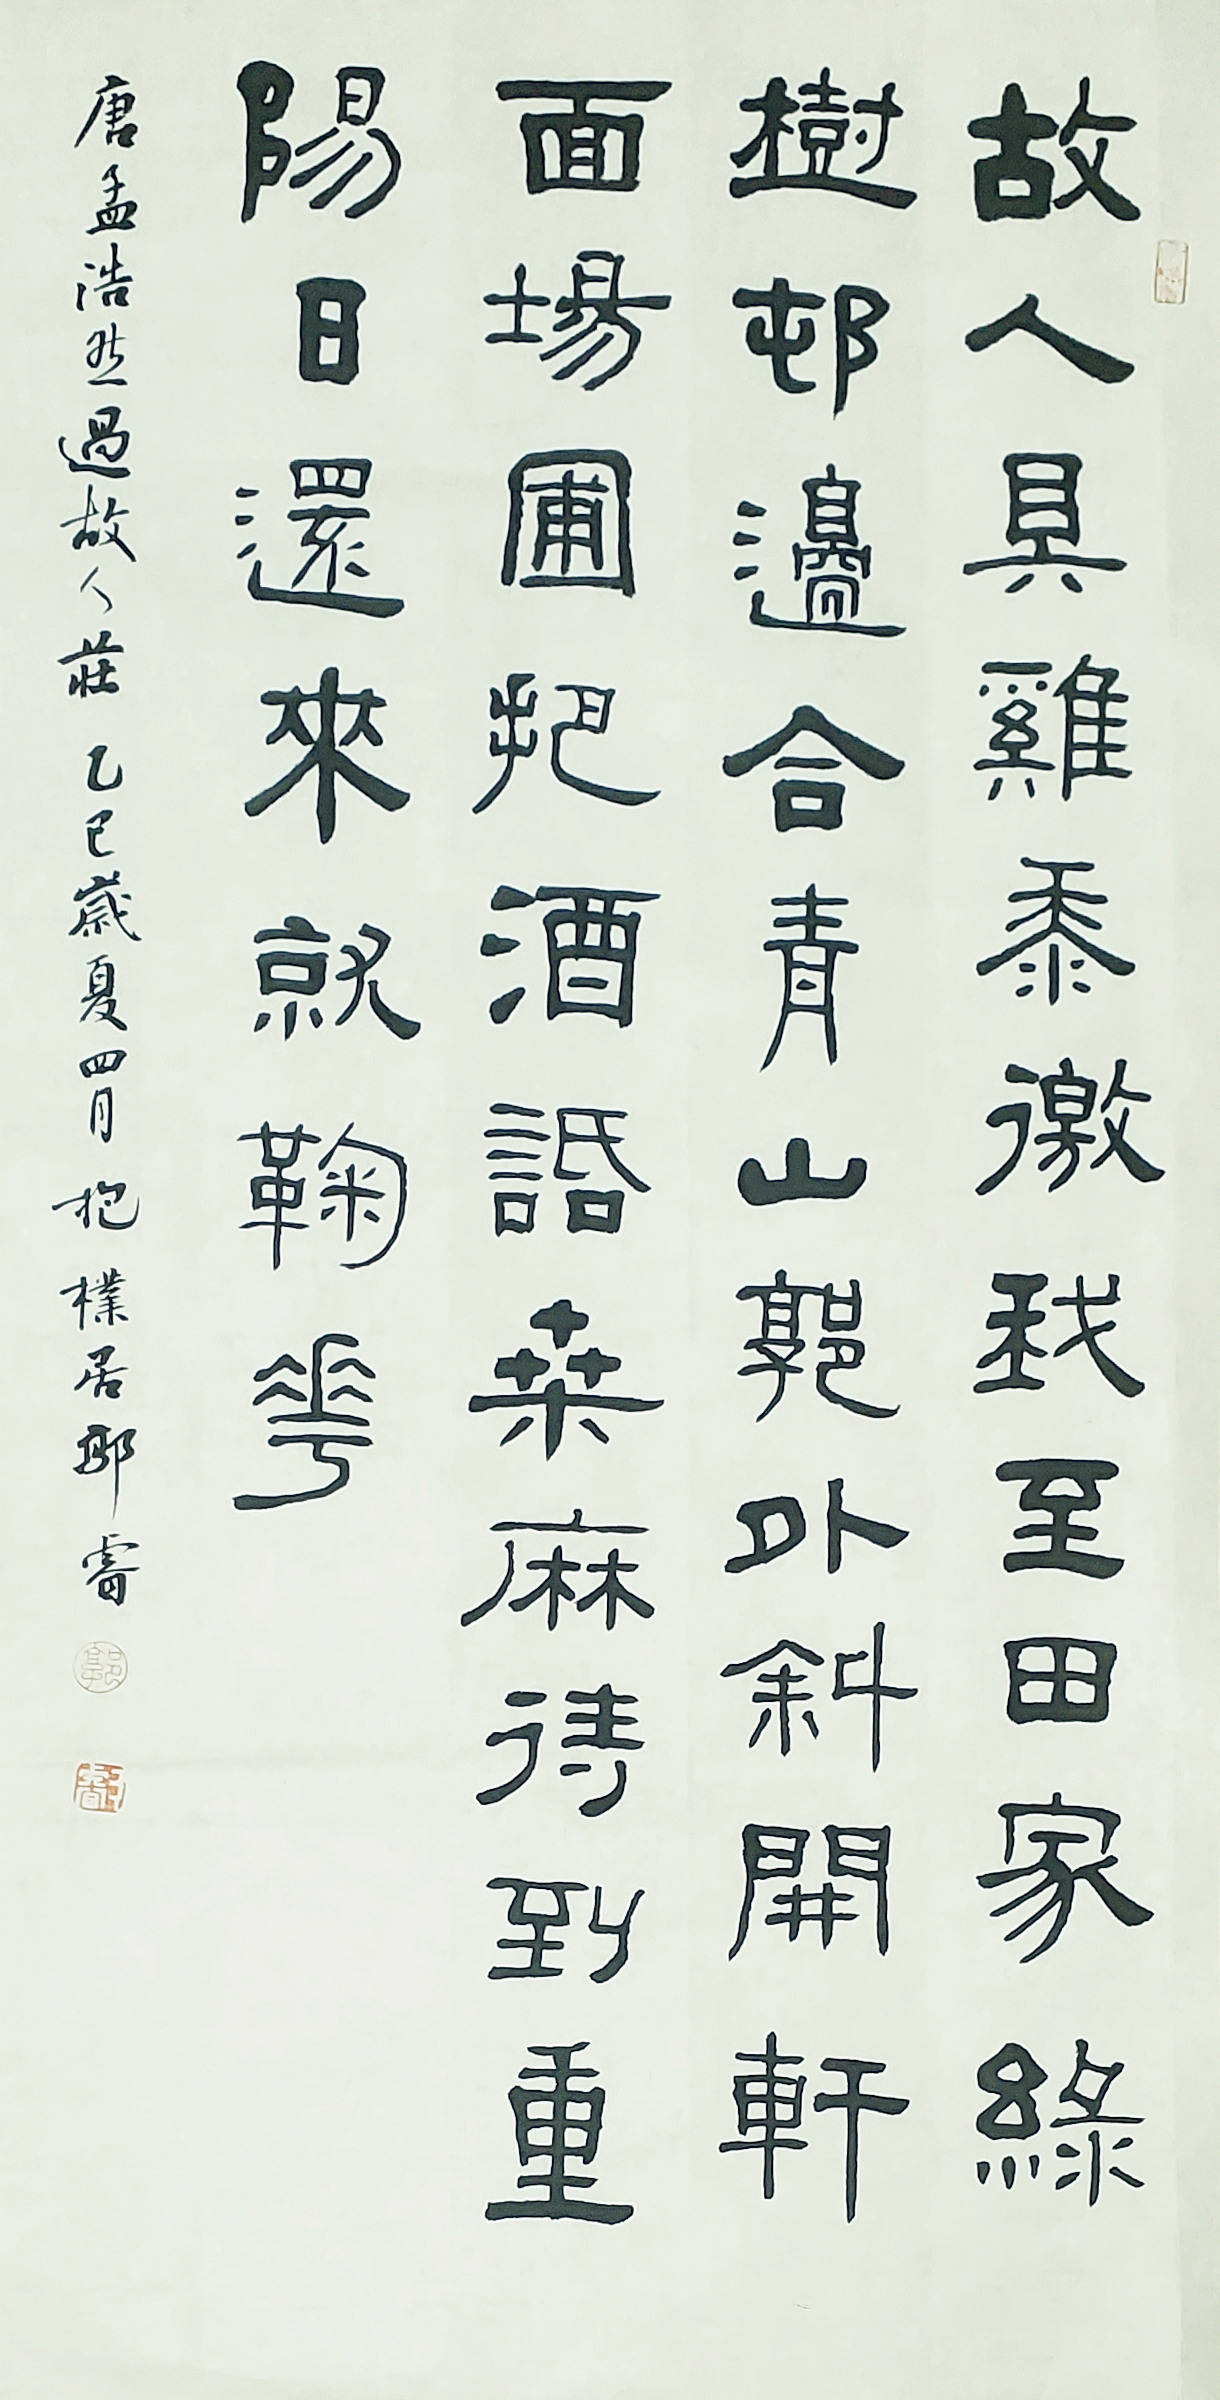 故人具雞黍徼我至田家綠
樹邨邊合青山郭外斜開軒
面場圃把酒話桑麻待到重
陽日還來就鞠華
唐孟浩然過故人莊 乙巳歲夏四月 抱樸居郭睿